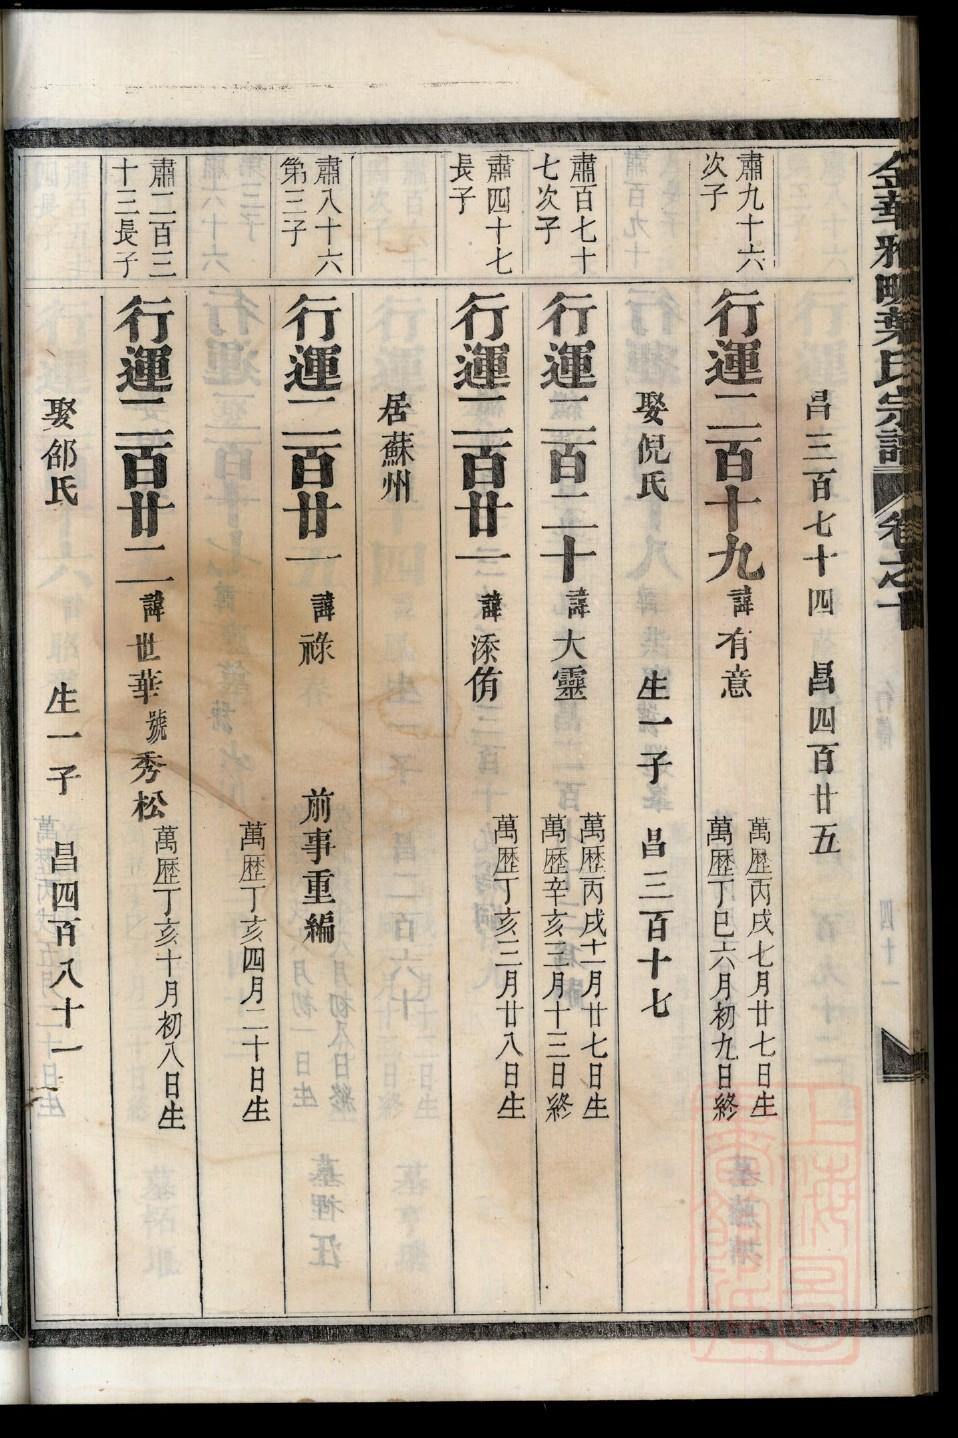 金華雅畈葉氏宗譜
卷之十
昌三百七十四 昌四百廿五
肅九十六
次子
行運二百十九 諱有意
萬歷丙戌七月廿七日生
萬歷丁巳六月初九日終
娶倪氏 生一子 昌三百十七
肅百七十
七次子
行運二百二十 諱大靈
萬歷丙戌十一月廿七日生
萬歷辛亥三月十三日終
肅四十七
長子
行運二百廿一 諱添侑
萬歷丁亥三月廿八日生
居蘇州
肅八十六
第三子
行運二百廿一 諱祿 前事重編
萬歷丁亥四月二十日生
肅二百三
十三長子
行運二百廿二 諱世華 號秀松
萬歷丁亥十月初八日生
娶邵氏 生一子 昌四百八十一